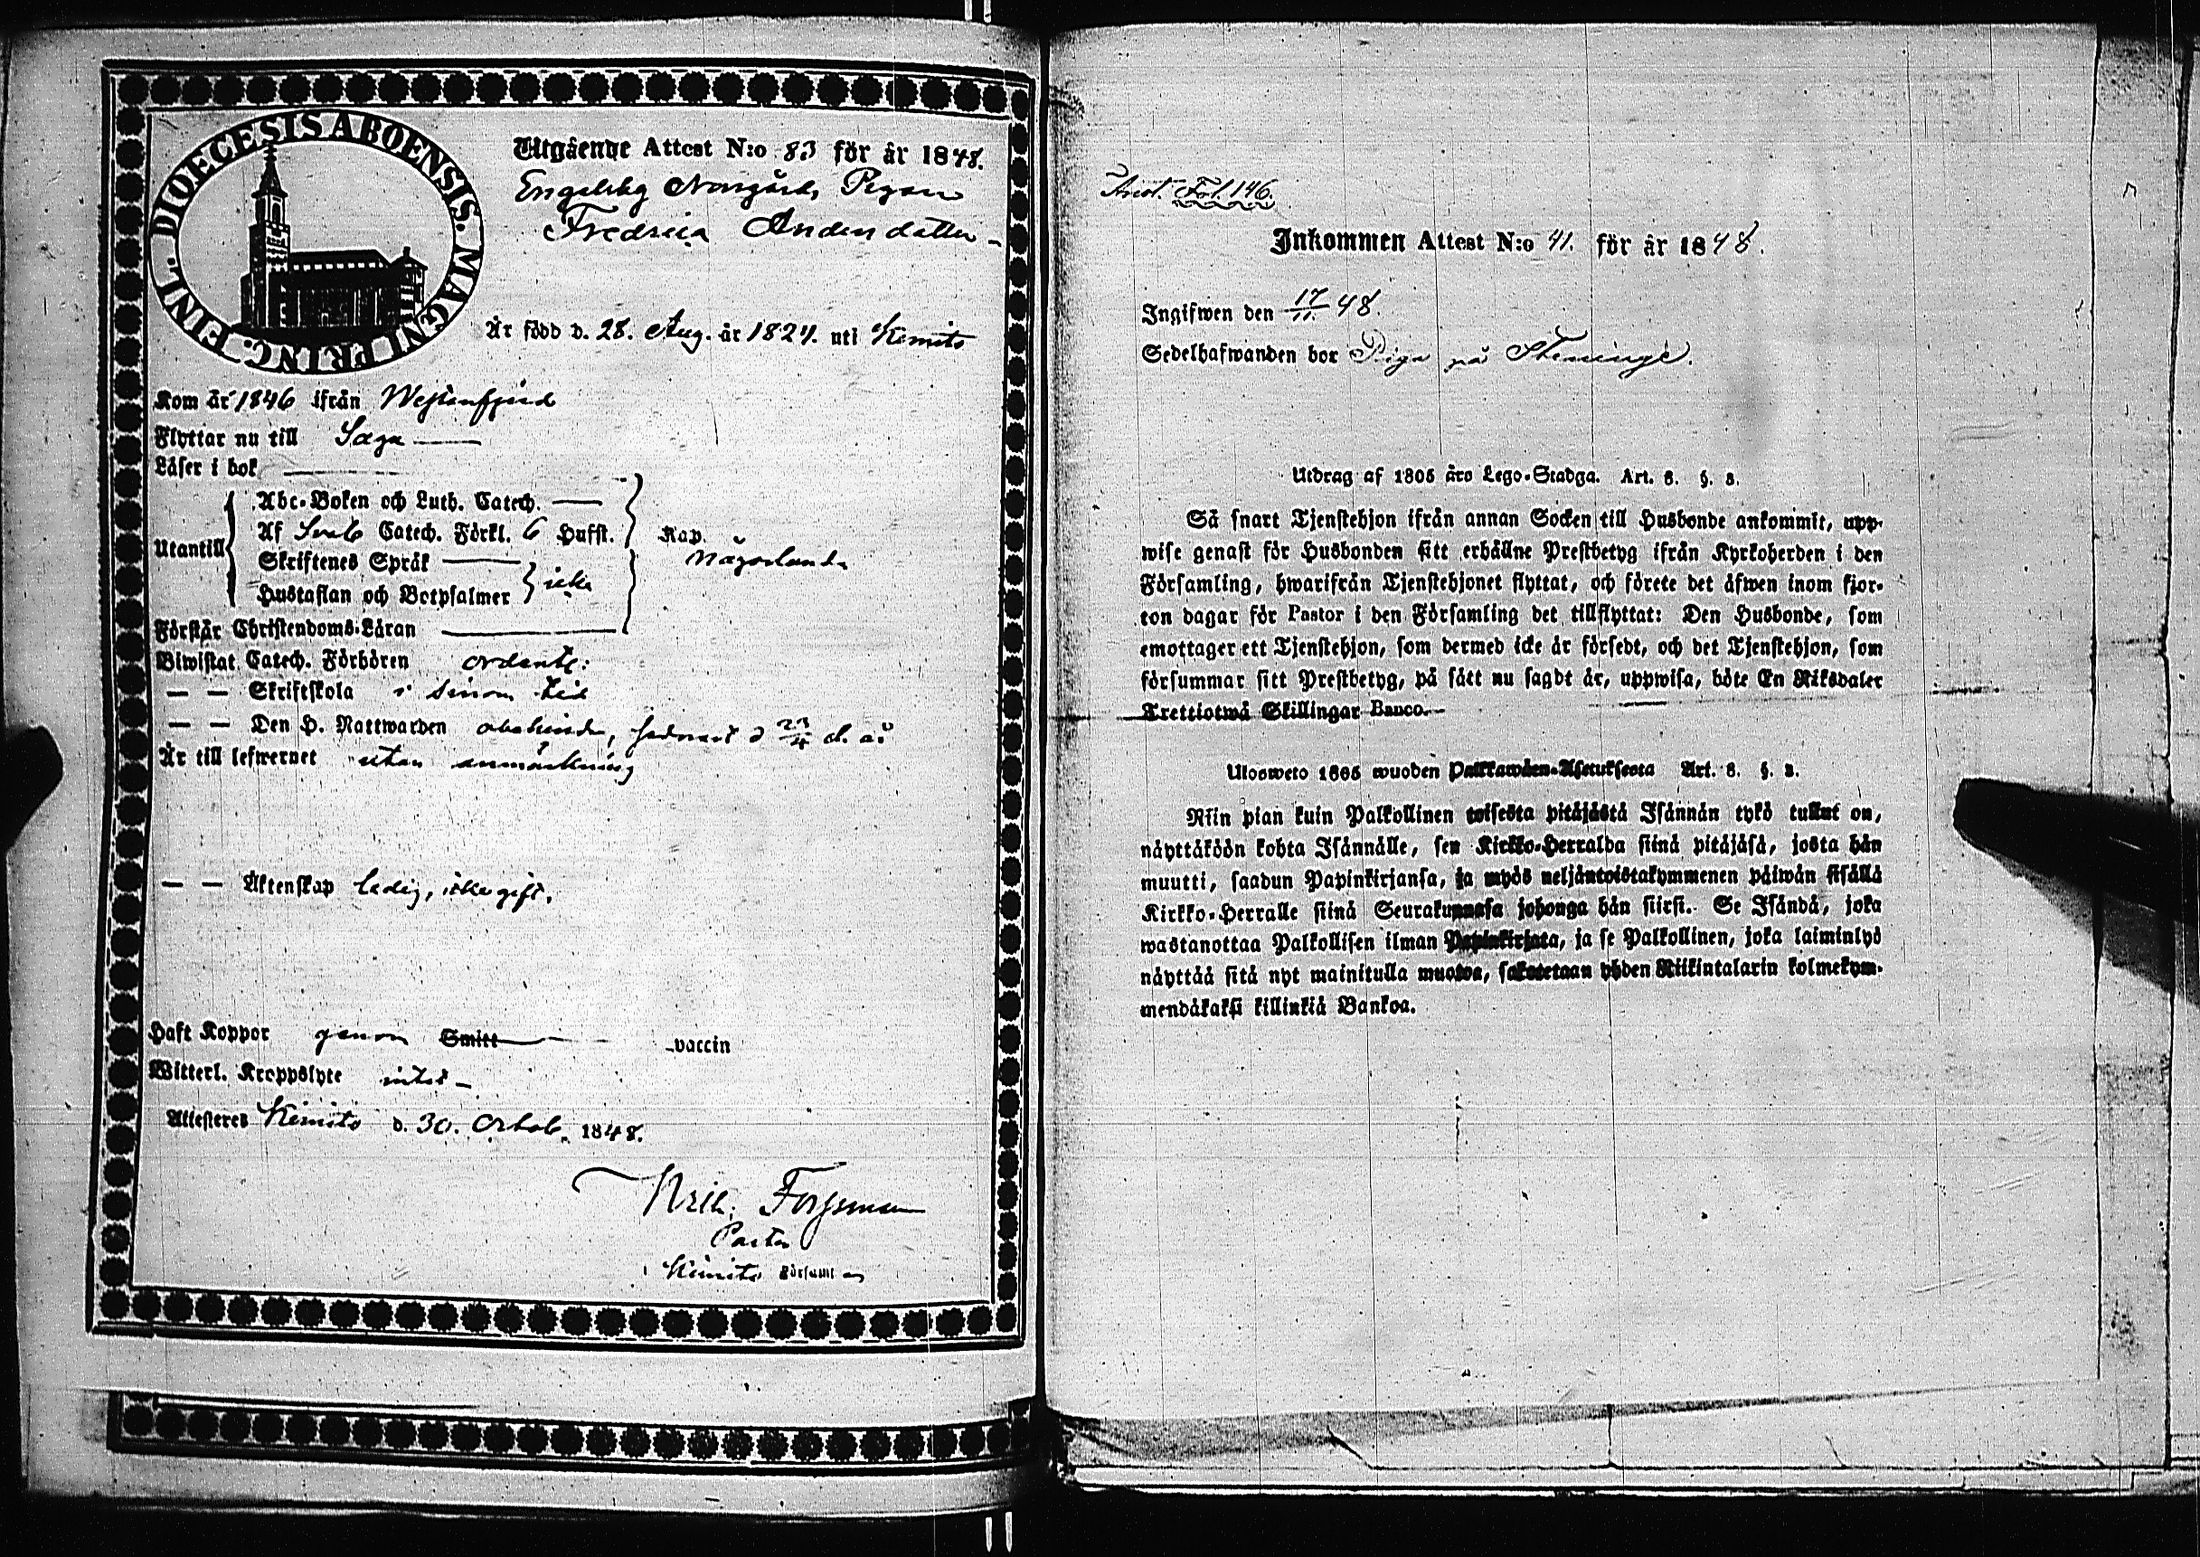 DIOECESIS ABOENSIS. MAGNI PRINC. FINL.
Utgående Attest N:o 83 för år 1848.
Engelsby Norrgård, Pigan
Fredrica Andersdotter
Är född d. 28. Aug. år 1824. uti Kimito
Kom år 1846 ifrån Westanfjerd
Flyttar nu till Sagu
Läser i bok
Abc-Boken och Luth. Catech.
Utantill Af Sveb Catech. Förkl. 6 Hufst.
Skriftenes Språk
Hustaflan och Botpsalmer icke
Kap. någorlunda
Förstår Christendoms-Läran
Biwistat Catech. Förhören ordentl:
— — Skriftskola i sinom tid
— — Den H. Nattwarden obehindr, sednast d 23/4 d. å.
Är till lefwernet utan anmärkning
— — Äktenskap ledig, icke gift.
Haft Koppor genom Smitt vaccin
Witterl. Kroppslyte intet
Attesteres Kimito d. 30. Octob. 1848.
Forssman
Pastor
i Kimito Församl
Fol. 146.
Inkommen Attest N:o 41. för år 1848.
Ingifwen den 17/11. 48.
Sedelhafwanden bor Piga på Steninge.
Utdrag af 1805 års Lego-Stadga. Art. 8. §. 3.
Så snart Tjenstehjon ifrån annan Socken till Husbonde ankommit, upp-
wise genast för Husbonden sitt erhållne Prestbetyg ifrån Kyrkoherden i den
Församling, hwarifrån Tjenstehjonet flyttat, och förete det äfwen inom fjor-
ton dagar för Pastor i den Församling det tillflyttat: Den Husbonde, som
emottager ett Tjenstehjon, som dermed icke är försedt, och det Tjenstehjon, som
försummar sitt Prestbetyg, på sätt nu sagdt är, uppwisa, böte En Riksdaler
Trettiotwå Skillingar Banco.
Ulosweto 1805 wuoden Palkkawäen-Asetuksesta Art. 8. §. 3.
Niin pian kuin Palkollinen toisesta pitäjästä Isännän tykö tullut on,
näyttäköön kohta Isännälle, sen Kirkko-Herralda siinä pitäjäsä, josta hän
muutti, saadun Papinkirjansa, ja myös neljäntoistakymmenen päiwän sisällä
Kirkko-Herralle siinä Seurakunnasa johonga hän siirsi. Se Isändä, joka
wastanottaa Palkollisen ilman Papinkirjata, ja se Palkollinen, joka laiminlyö
näyttää sitä nyt mainitulla muotoa, sakotetaan yhden Riikintalarin kolmekym-
mendäkaksi killinkiä Bankoa.